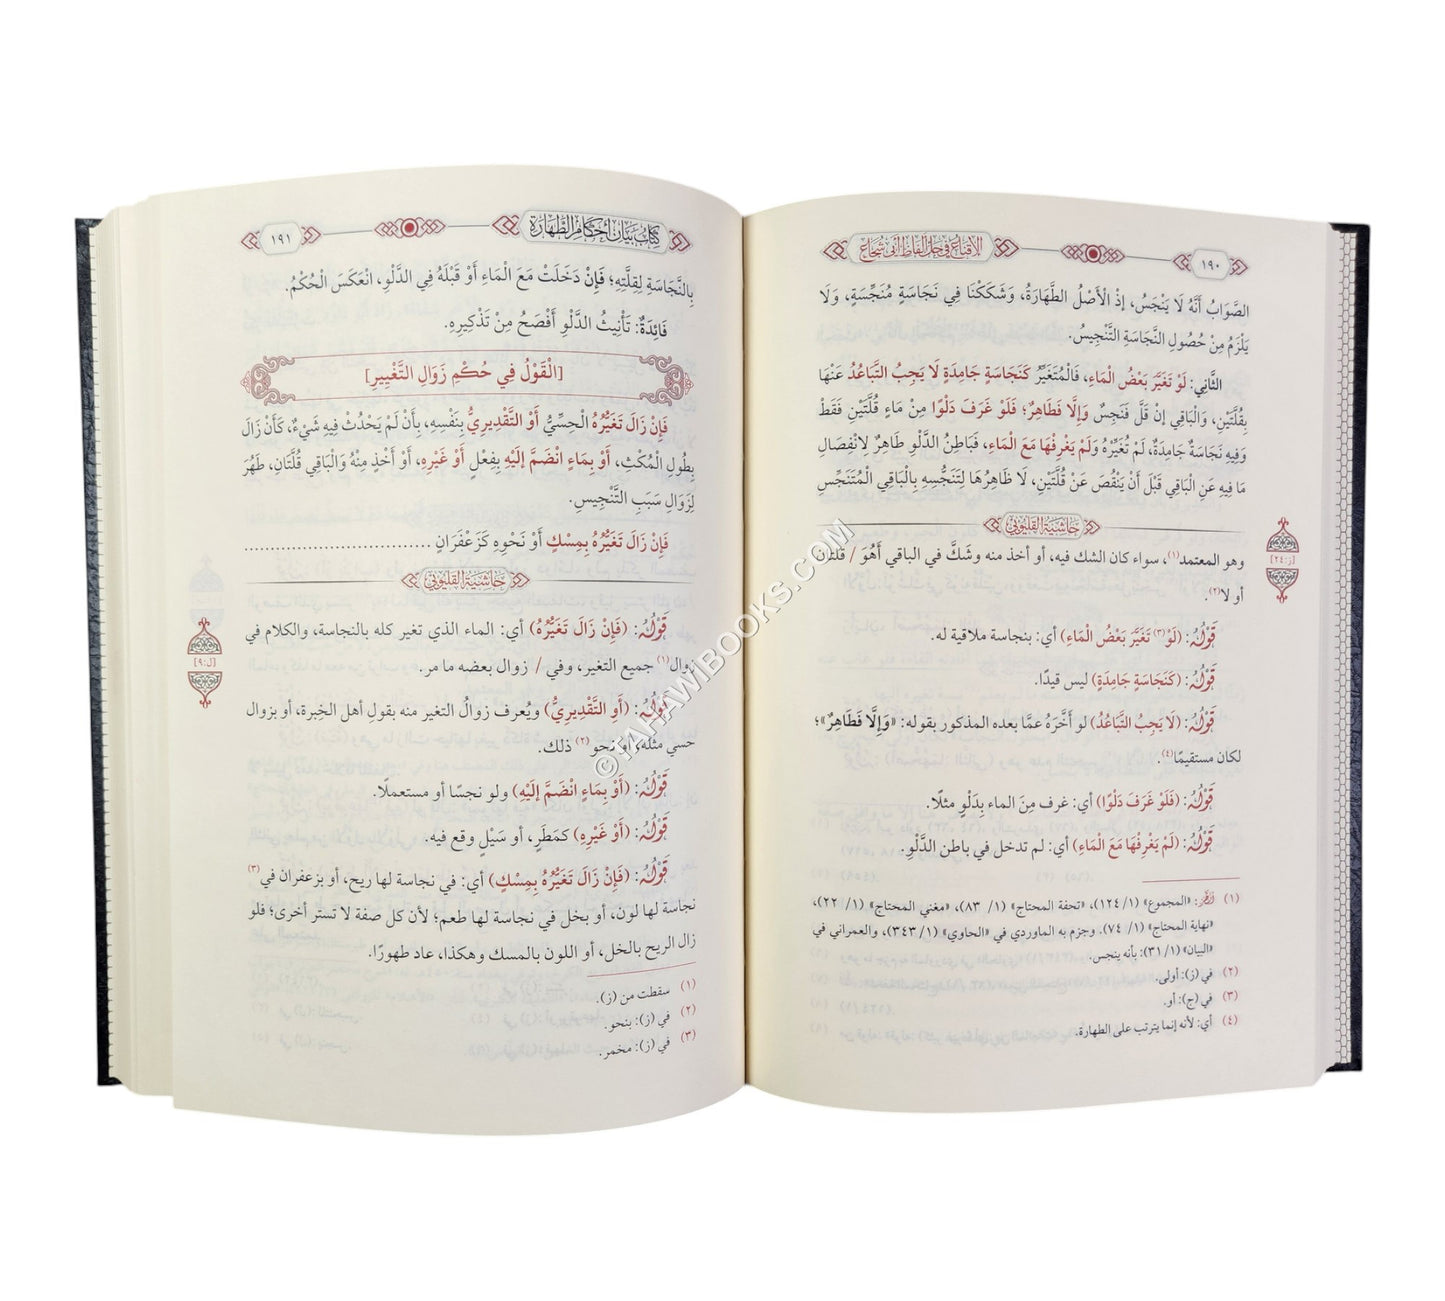 ١٩٠
الإقناع في حل ألفاظ أبي شجاع
الصَّوَابُ أَنَّهُ لَا يَنْجَسُ، إِذْ الْأَصْلُ الطَّهَارَةُ، وَشَكَكْنَا فِي نَجَاسَةٍ مُنَجِّسَةٍ، وَلَا
يَلْزَمُ مِنْ حُصُولِ النَّجَاسَةِ التَّنْجِيسُ.
الثَّانِي: لَوْ تَغَيَّرَ بَعْضُ الْمَاءِ، فَالْمُتَغَيِّرُ كَنَجَاسَةٍ جَامِدَةٍ لَا يَجِبُ التَّبَاعُدُ عَنْهَا
بِقُلَّتَيْنِ، وَالْبَاقِي إِنْ قَلَّ فَنَجِسٌ وَإِلَّا فَطَاهِرٌ؛ فَلَوْ غَرَفَ دَلْوًا مِنْ مَاءٍ قُلَّتَيْنِ فَقَطْ
وَفِيهِ نَجَاسَةٌ جَامِدَةٌ، لَمْ تُغَيِّرْهُ وَلَمْ يَغْرِفْهَا مَعَ الْمَاءِ، فَبَاطِنُ الدَّلْوِ طَاهِرٌ لِانْفِصَالِ
مَا فِيهِ عَنِ الْبَاقِي قَبْلَ أَنْ يَنْقُصَ عَنْ قُلَّتَيْنِ، لَا ظَاهِرُهَا لِتَنَجُّسِهِ بِالْبَاقِي الْمُتَنَجِّسِ
حاشية القليوبي
وهو المعتمد(١)، سواء كان الشك فيه، أو أخذ منه وشَكَّ في الباقي أَهُوَ / قلتان
[ز:٢٤]
أو لا(٢).
قَوْلُهُ: (لَوْ(٣) تَغَيَّرَ بَعْضُ الْمَاءِ) أي: بنجاسة ملاقية له.
قَوْلُهُ: (كَنَجَاسَةٍ جَامِدَةٍ) ليس قيدًا.
قَوْلُهُ: (لَا يَجِبُ التَّبَاعُدُ) لو أَخَّرَهُ عمَّا بعده المذكور بقوله: «وَإِلَّا فَطَاهِرٌ»؛
لكان مستقيمًا(٤).
قَوْلُهُ: (فَلَوْ غَرَفَ دَلْوًا) أي: غرف مِنَ الماء بِدَلْوٍ مثلًا.
قَوْلُهُ: (لَمْ يَغْرِفْهَا مَعَ الْمَاءِ) أي: لم تدخل في باطن الدَّلْوِ.
(١) انظر: «المجموع» (١/ ١٢٤)، «تحفة المحتاج» (١/ ٨٣)، «مغني المحتاج» (١/ ٢٢)،
«نهاية المحتاج» (١/ ٧٤). وجزم به الماوردي في «الحاوي» (١/ ٣٤٣)، والعمراني في
«البيان» (١/ ٣١): بأنه ينجس.
(٢) في (ز): أولى.
(٣) في (ج): أو.
(٤) أي: لأنه إنما يترتب على الطهارة.
كتاب بيان أحكام الطهارة
١٩١
بِالنَّجَاسَةِ لِقِلَّتِهِ؛ فَإِنْ دَخَلَتْ مَعَ الْمَاءِ أَوْ قَبْلَهُ فِي الدَّلْوِ، انْعَكَسَ الْحُكْمُ.
فَائِدَةٌ: تَأْنِيثُ الدَّلْوِ أَفْصَحُ مِنْ تَذْكِيرِهِ.
[الْقَوْلُ فِي حُكْمِ زَوَالِ التَّغْيِيرِ]
فَإِنْ زَالَ تَغَيُّرُهُ الْحِسِّيُّ أَوْ التَّقْدِيرِيُّ بِنَفْسِهِ، بِأَنْ لَمْ يَحْدُثْ فِيهِ شَيْءٌ، كَأَنْ زَالَ
بِطُولِ الْمُكْثِ، أَوْ بِمَاءٍ انْضَمَّ إِلَيْهِ بِفِعْلٍ أَوْ غَيْرِهِ، أَوْ أَخْذٍ مِنْهُ وَالْبَاقِي قُلَّتَانِ، طَهُرَ
لِزَوَالِ سَبَبِ التَّنْجِيسِ.
فَإِنْ زَالَ تَغَيُّرُهُ بِمِسْكٍ أَوْ نَحْوِهِ كَزَعْفَرَانٍ ................................
حاشية القليوبي
قَوْلُهُ: (فَإِنْ زَالَ تَغَيُّرُهُ) أي: الماء الذي تغير كله بالنجاسة، والكلام في
زوال(١) جميع التغير، وفي / زوال بعضه ما مر.
[ل:٩]
قَوْلُهُ: (أَو التَّقْدِيرِيُّ) ويُعرف زوالُ التغير منه بقولِ أهل الخِبرة، أو بزوال
حسي مثله، أو نحو(٢) ذلك.
قَوْلُهُ: (أَوْ بِمَاءٍ انْضَمَّ إِلَيْهِ) ولو نجسًا أو مستعملًا.
قَوْلُهُ: (أَوْ غَيْرِهِ) كمَطَرٍ، أو سَيْلٍ وقع فيه.
قَوْلُهُ: (فَإِنْ زَالَ تَغَيُّرُهُ بِمِسْكٍ) أي: في نجاسة لها ريح، أو بزعفران في(٣)
نجاسة لها لون، أو بخل في نجاسة لها طعم؛ لأن كل صفة لا تستر أخرى؛ فلو
زال الريح بالخل، أو اللون بالمسك وهكذا، عاد طهورًا.
(١) سقطت من (ز).
(٢) في (ز): بنحو.
(٣) في (ز): مخمر.
© TAFAWIBOOKS.COM